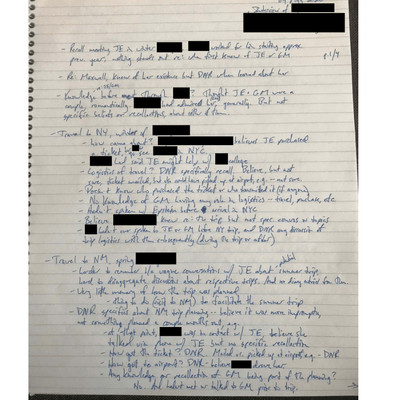 Interview of
p.1/4
- Recall meeting JE in winter worked for him starting approx.
prior year, nothing stands out re: when first knew of JE or GM
- Re: Maxwell, knew of her existence but DNR when learned about her
- Knowledge before meet through ? Thought JE + GM were a
couple, romantically had admired generally. But not
specific beliefs or recollections, about either of them.
- Travel to NY, winter of
- how come about? believes JE purchased
a ticket, to see in NYC
- had said JE might help w/ college
- Logistics of travel? DNR specifically recall. Believe, but not
sure, ticket mailed, but it could have picked up at airport, e.g. - not sure
- Doesn't know who purchased the ticket or who transmitted it
- No knowledge of GM having any role in logistics - travel, purchase, etc.
- Hadn't spoken w/ Epstein before arrival in NYC
- Believe knew re: the trip, but not spec convos or topics
- hadn't ever spoken to JE or GM before NY trip, and DNR any discussion of
trip logistics with them subsequently (during the trip or after)
- Travel to NM, spring
- Harder to remember b/c vague conversations w/ JE about summer trip.
Hard to disaggregate discussions about respective trips. And no diary advice from then
- Very little memory of how the trip was planned
- thing to do (visit to NM) to facilitate the summer trip
- DNR specifics about NM trip planning - believe it was more impromptu,
not something planned a couple months out, e.g.
- at that point, was in contact w/ JE, believe she
talked via phone w/ JE but no specific recollection
- How got the ticket? DNR. Mailed or picked up at airport, e.g. - DNR
- How got to airport? DNR - believe drove her
- Any knowledge or recollection of GM being part of the planning?
No. And hadn't met or talked to GM prior to trip.